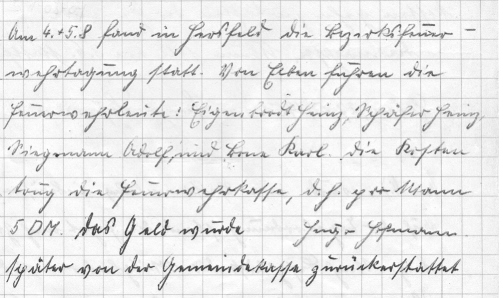 Am 4.+5.8 fand in Hersfeld die Bezirksfeuer-
wehrtagung statt. Von Elben fuhren die
Feuerwehrleute: Eigenbrodt Heinz, Schäfer Heinz,
Siegmann Adolf, und Bone Karl. die Kosten
trug die Feuerwehrkasse, d.h. pro Mann
5 DM. das Geld wurde Hofmann.
später von der Gemeindekasse zurückerstattet